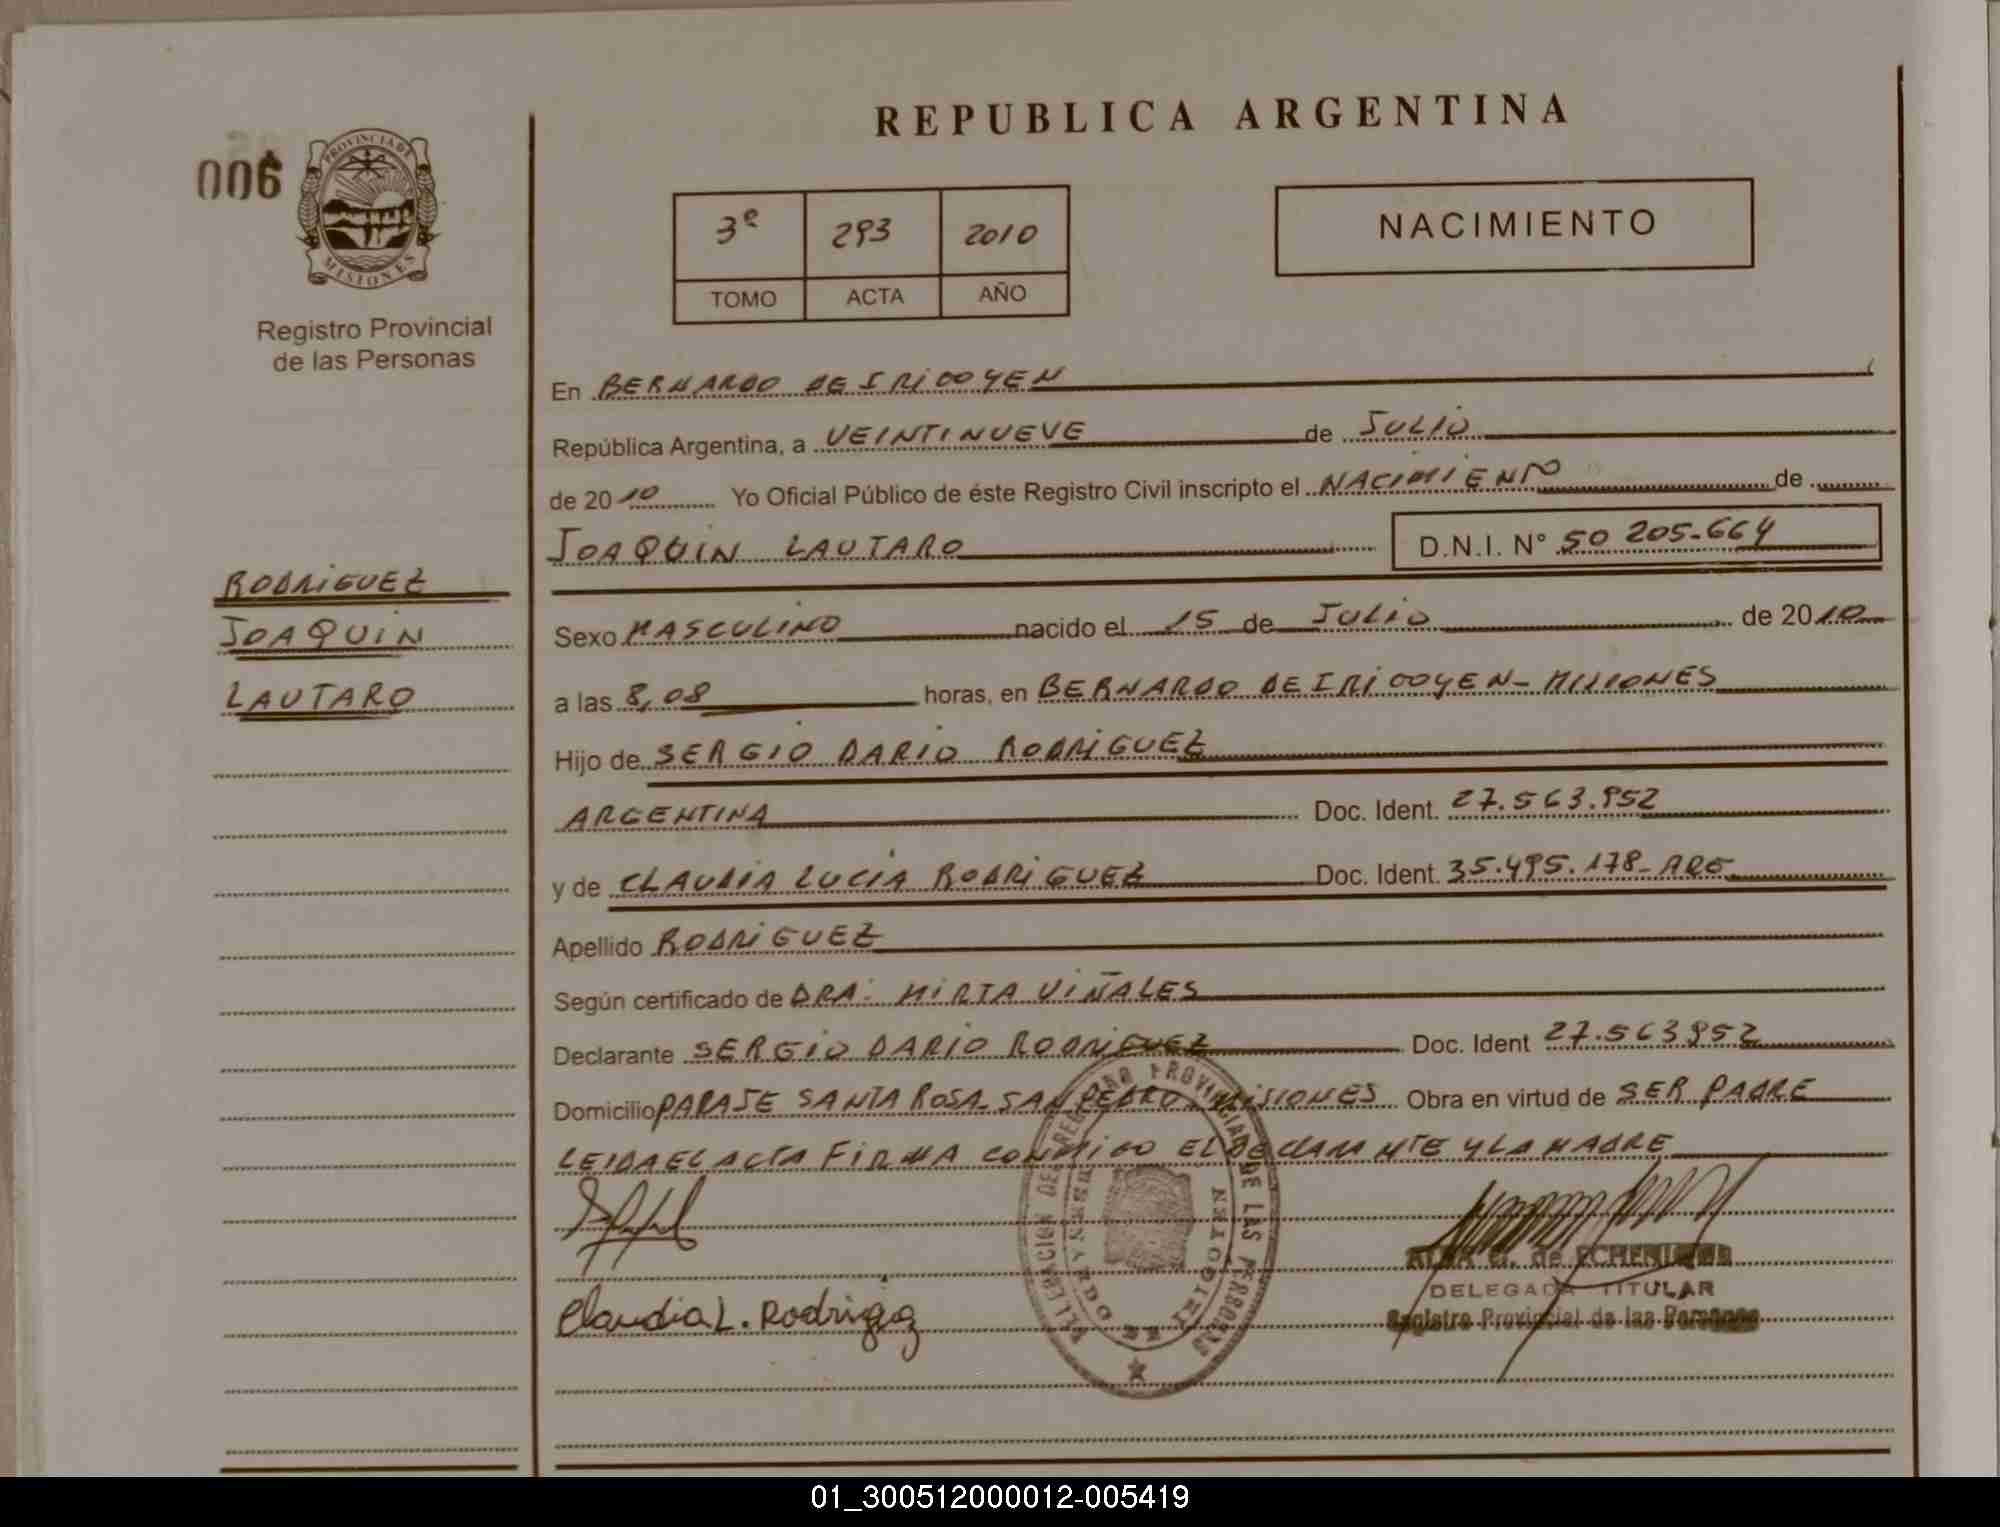 REPUBLICA ARGENTINA
006
PROVINCIA DE
MISIONES
Registro Provincial
de las Personas
3º 293 2010
TOMO ACTA AÑO
NACIMIENTO
En BERNARDO DE IRIGOYEN
República Argentina, a VEINTINUEVE de JULIO
de 2010 Yo Oficial Público de éste Registro Civil inscripto el NACIMIENTO de
JOAQUIN LAUTARO D.N.I. N° 50 205.664
RODRIGUEZ
JOAQUIN
LAUTARO
Sexo MASCULINO nacido el 15 de JULIO de 2010
a las 8,08 horas, en BERNARDO DE IRIGOYEN - MISIONES
Hijo de SERGIO DARIO RODRIGUEZ
ARGENTINA Doc. Ident. 27.563.952
y de CLAUDIA LUCIA RODRIGUEZ Doc. Ident. 35.495.178- ARG
Apellido RODRIGUEZ
Según certificado de DRA: MIRTA VIÑALES
Declarante SERGIO DARIO RODRIGUEZ Doc. Ident 27.563952
Domicilio PARAJE SANTA ROSA - SAN PEDRO - MISIONES Obra en virtud de SER PADRE
LEIDA EL ACTA FIRMA CONMIGO EL DECLARANTE Y LA MADRE
Claudia L. Rodriguez
DE LAS PERSONAS
de ECHENIQUE
DELEGADA TITULAR
Registro Provincial de las Personas
01_300512000012-005419